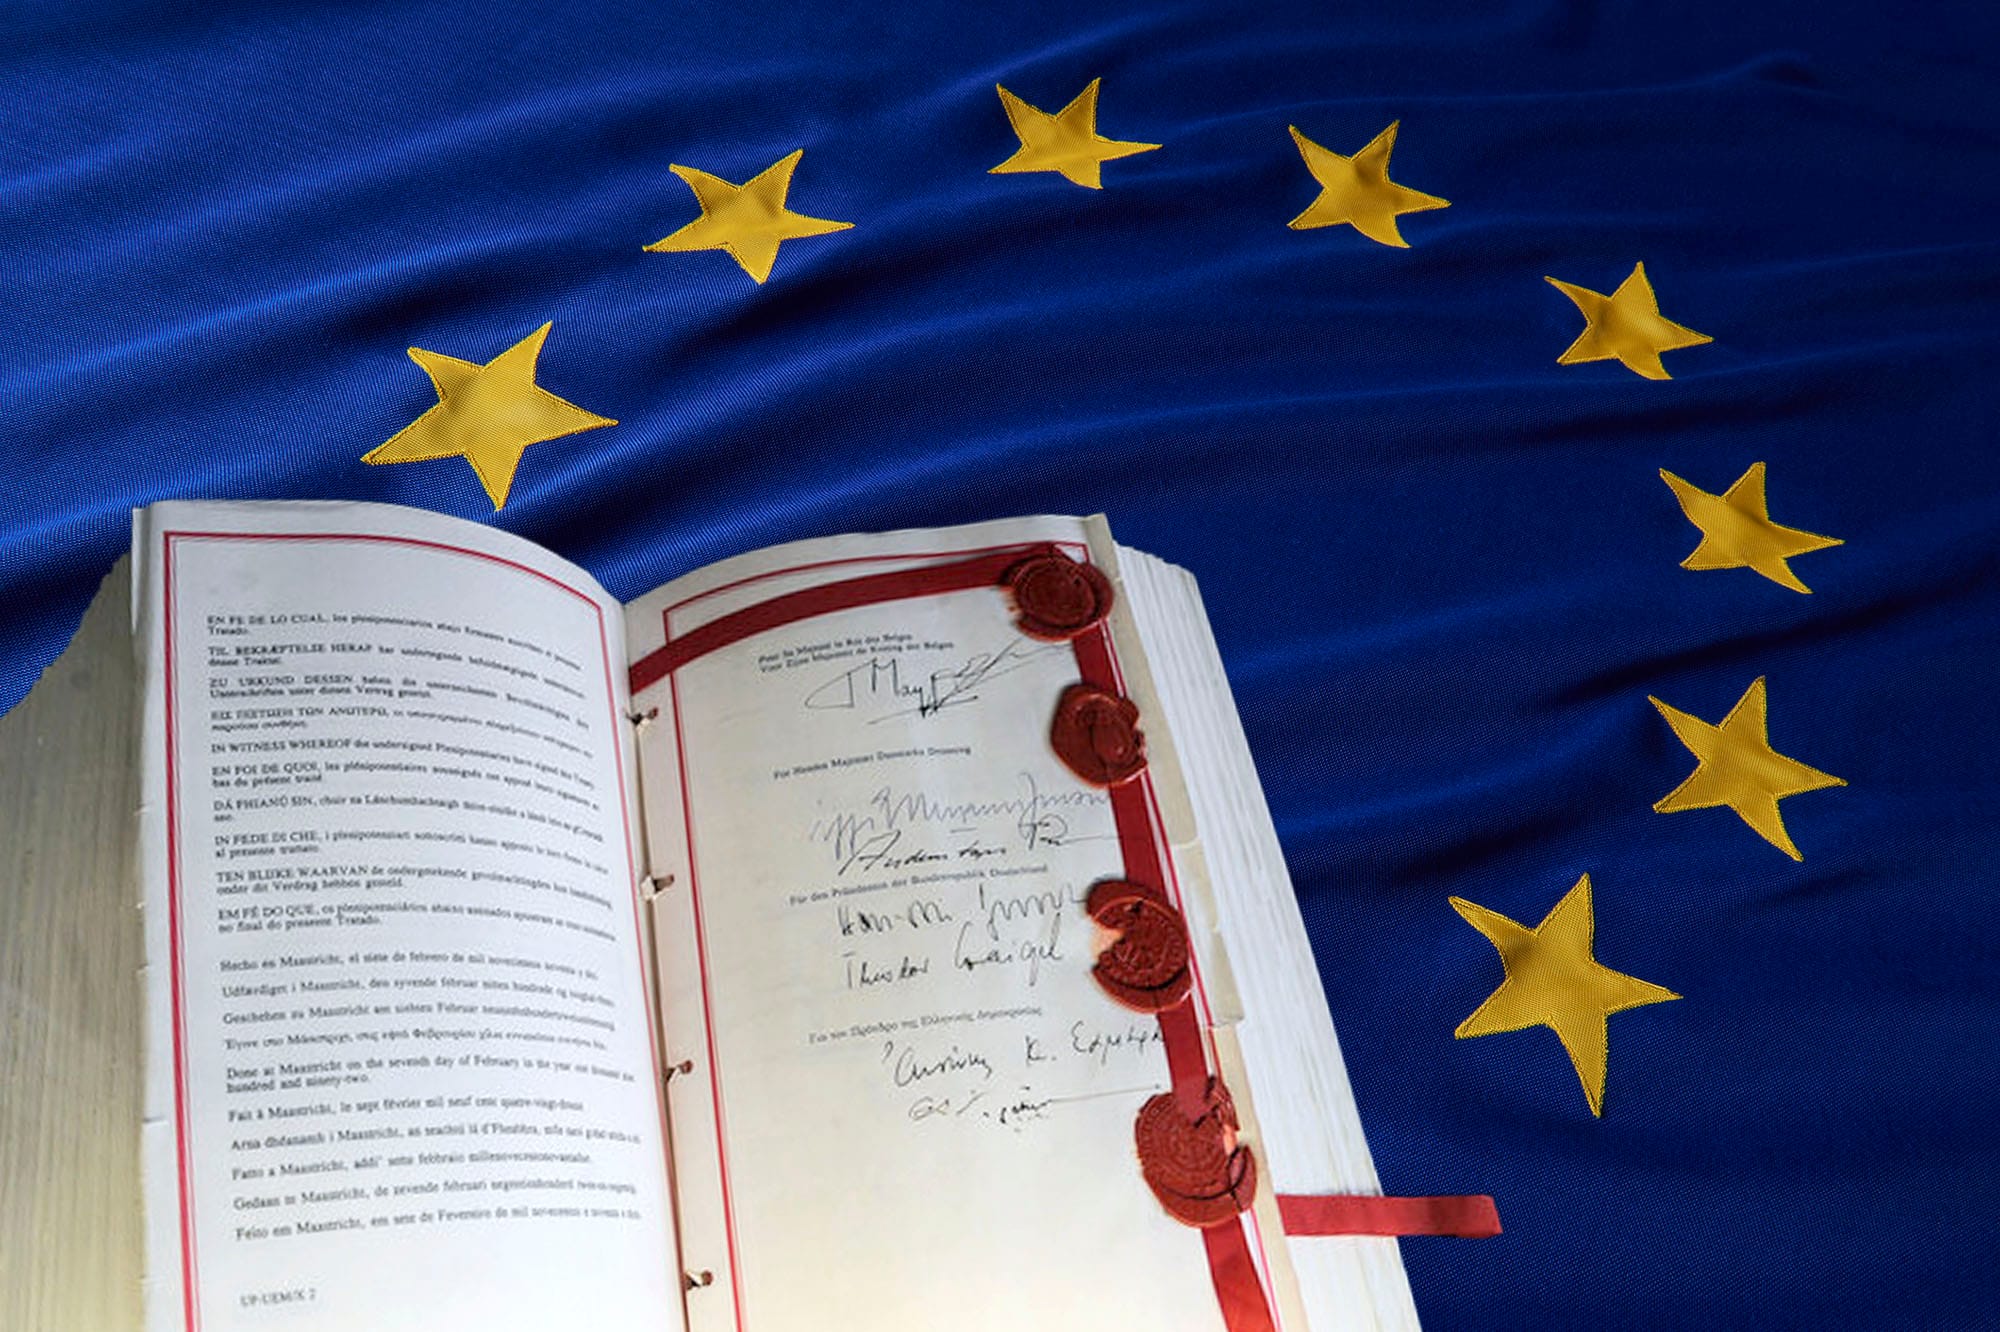 EN FE DE LO CUAL, los plenipotenciarios abajo firmantes suscriben el presente
Tratado.
TIL BEKRÆFTELSE HERAF har undertegnede befuldmægtigede underskrevet
denne Traktat.
ZU URKUND DESSEN haben die unterzeichneten Bevollmächtigten ihre
Unterschriften unter diesen Vertrag gesetzt.
ΕΙΣ ΠΙΣΤΩΣΗ ΤΩΝ ΑΝΩΤΕΡΩ, οι υπογεγραμμένοι πληρεξούσιοι υπέγραψαν την
παρούσα συνθήκη.
IN WITNESS WHEREOF the undersigned Plenipotentiaries have signed this Treaty.
EN FOI DE QUOI, les plénipotentiaires soussignés ont apposé leurs signatures au
bas du présent traité.
DÁ FHIANÚ SIN, chuir na Lánchumhachtaigh thíos-sínithe a lámh leis an gConradh
seo.
IN FEDE DI CHE, i plenipotenziari sottoscritti hanno apposto le loro firme in calce
al presente trattato.
TEN BLIJKE WAARVAN de ondergetekende gevolmachtigden hun handtekening
onder dit Verdrag hebben gesteld.
EM FÉ DO QUE, os plenipotenciários abaixo assinados apuseram as suas assinaturas
no final do presente Tratado.
Hecho en Maastricht, el siete de febrero de mil novecientos noventa y dos.
Udfærdiget i Maastricht, den syvende februar nitten hundrede og tooghalvfems.
Geschehen zu Maastricht am siebten Februar neunzehnhundertzweiundneunzig.
Έγινε στο Μάαστριχτ, στις εφτά Φεβρουαρίου χίλια εννιακόσια ενενήντα δύο.
Done at Maastricht on the seventh day of February in the year one thousand nine
hundred and ninety-two.
Fait à Maastricht, le sept février mil neuf cent quatre-vingt-douze.
Arna dhéanamh i Maastricht, an seachtú lá d'Fheabhra, míle naoi gcéad nócha a dó.
Fatto a Maastricht, addì' sette febbraio millenovecentonovantadue.
Gedaan te Maastricht, de zevende februari negentienhonderd twee-en-negentig.
Feito em Maastricht, em sete de Fevereiro de mil novecentos e noventa e dois.
UP-UEM/X 2
Pour Sa Majesté le Roi des Belges
Voor Zijne Majesteit de Koning der Belgen
For Hendes Majestæt Danmarks Dronning
Für den Präsidenten der Bundesrepublik Deutschland
Theodor Waigel
Για τον Πρόεδρο της Ελληνικής Δημοκρατίας